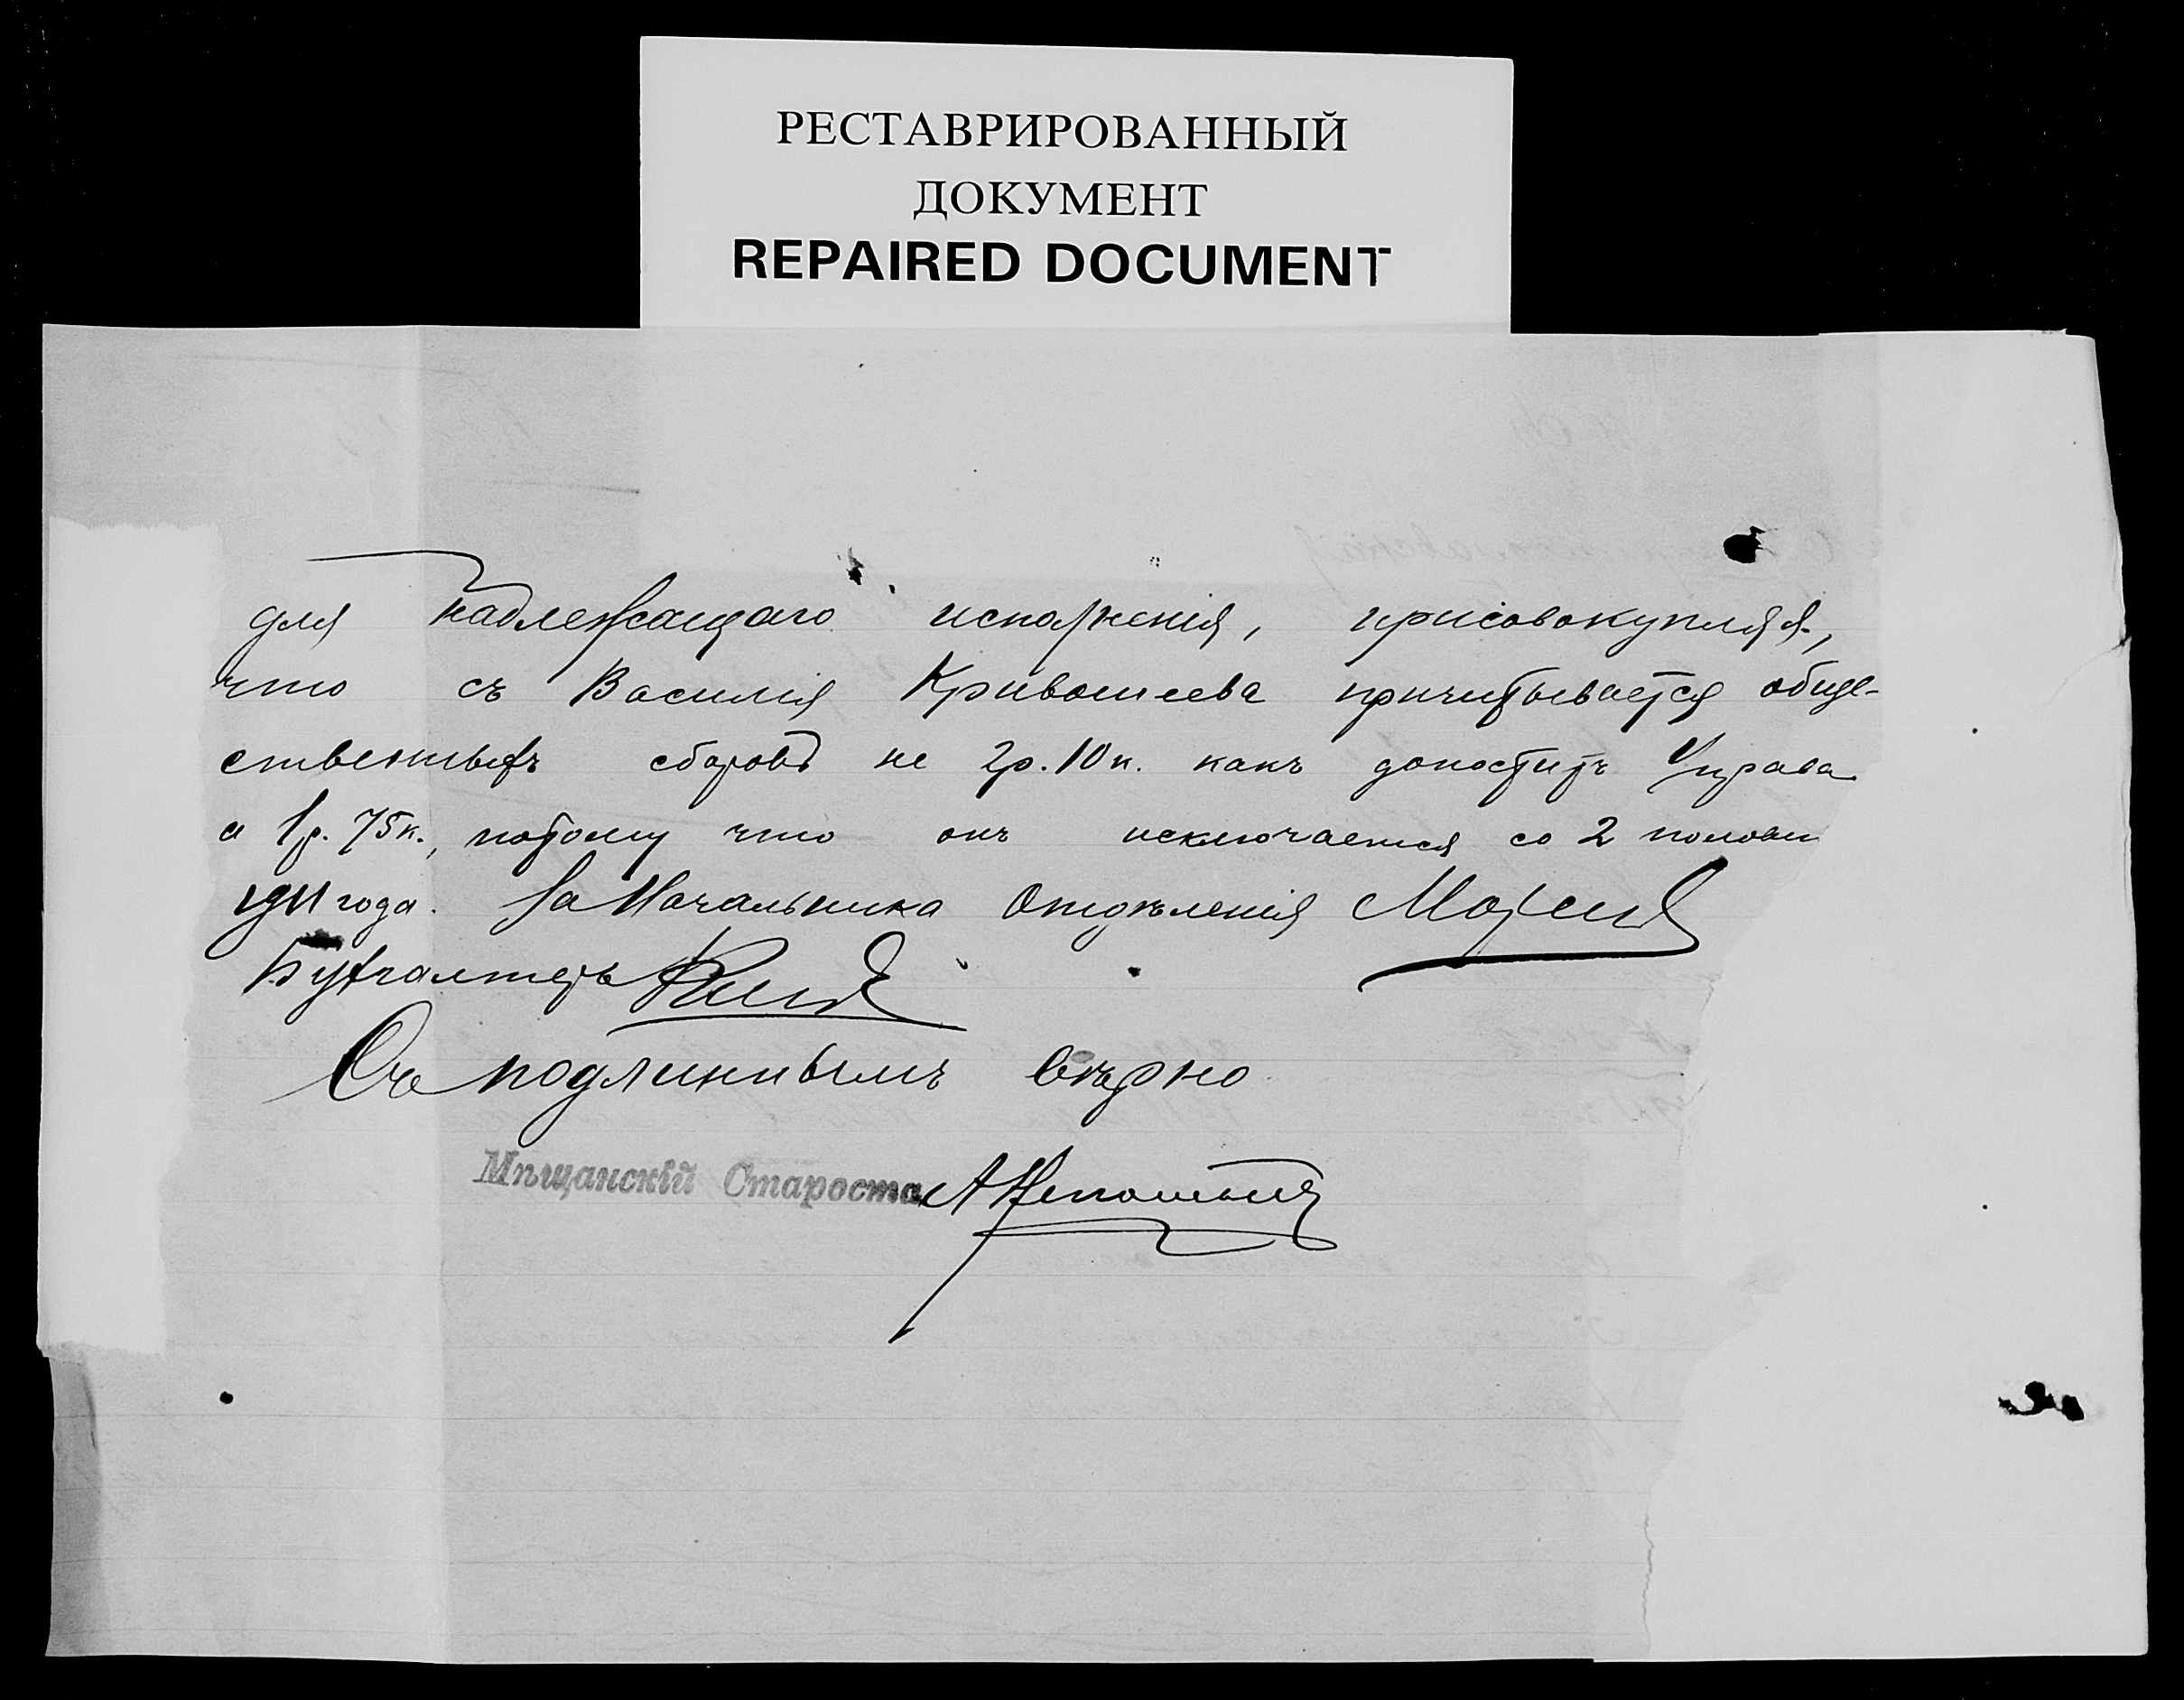 РЕСТАВРИРОВАННЫЙ
ДОКУМЕНТ
REPAIRED DOCUMENT
для надлежащаго исполненія, присовокупляя,
что съ Василія Кривошеева причитывается обще-
ственныхъ сборовъ не 2р. 10к. какъ доноситъ Управа
а 1р. 75к., потому что онъ исключается со 2 полови
года. За Начальника Отдѣленія
Бухгалтеръ
Съ подлиннымъ вѣрно
Мѣщанскій Староста